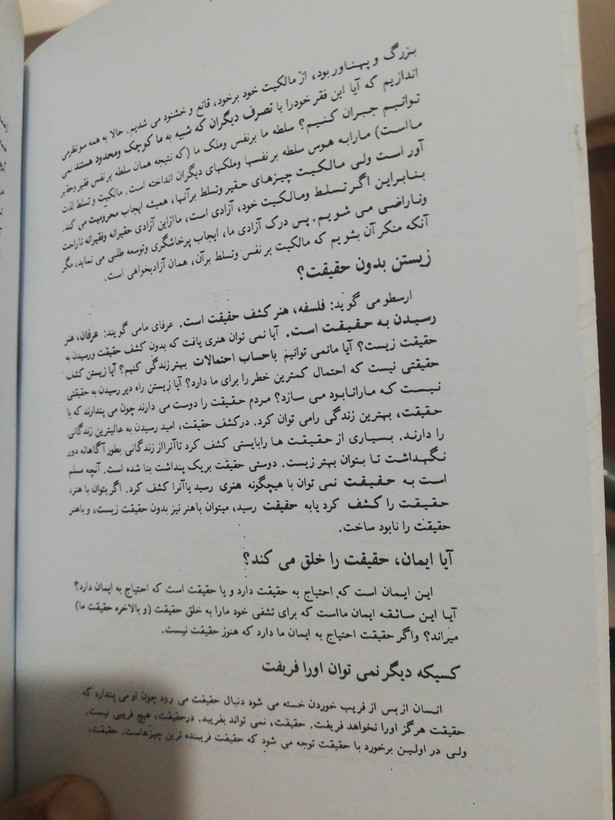 بزرگ و پهناور بود، از مالکیت خود برخود، قانع و خشنود می شدیم. حالا به همه سو نظر می
اندازیم که آیا این فقر خودرا با تصرف دیگران که شبیه به ما کوچک ومحدود هستند نمی
توانیم جبران کنیم؟ سلطه ما برنفس وملک ما (که نتیجه همان سلطه بر نفس فقیر وحقیر
مااست) مارابه هوس سلطه بر نفسها وملکهای دیگران انداخته است. مالکیت و تسلط لذت
آور است ولی مالکیت چیزهای حقیر وتسلط برآنها، همیشه ایجاب محرومیت می کند.
بنابراین اگر تسلط ومالکیت خود، آزادی است، ماازاین آزادی حقیرانه وفقیرانه ناراحت
وناراضی می شویم. پس درک آزادی ما، ایجاب پرخاشگری وتوسعه طلبی می نماید. مگر
آنکه منکر آن بشویم که مالکیت بر نفس وتسلط برآن، همان آزادیخواهی است.
زیستن بدون حقیقت؟
ارسطو می گوید: فلسفه، هنر کشف حقیقت است. عرفای مامی گویند: عرفان، هنر
رسیدن به حقیقت است. آیا نمی توان هنری یافت که بدون کشف حقیقت ورسیدن به
حقیقت زیست؟ آیا مانمی توانیم باحساب احتمالات بهتر زندگی کنیم؟ آیا زیستن کشف
حقیقتی نیست که احتمال کمترین خطر را برای ما دارد؟ آیا زیستن راه دیر رسیدن به حقیقتی
نیست که مارانابود می سازد؟ مردم حقیقت را دوست می دارند چون می پندارند که با
حقیقت، بهترین زندگی رامی توان کرد. درکشف حقیقت، امید رسیدن به عالیترین زندگانی
را دارند. بسیاری از حقیقت ها رابایستی کشف کرد تاآنرااز زندگانی بطور آگاهانه دور
نگهداشت تا بتوان بهتر زیست. دوستی حقیقت بریک پنداشت بنا شده است. آنچه مسلم
است به حقیقت نمی توان با هیچگونه هنری رسید یاآنرا کشف کرد. اگر بتوان با هنر،
حقیقت را کشف کرد یابه حقیقت رسید، میتوان باهنر نیز بدون حقیقت زیست، و باهنر
حقیقت را نابود ساخت.
آیا ایمان، حقیقت را خلق می کند؟
این ایمان است که احتیاج به حقیقت دارد و یا حقیقت است که احتیاج به ایمان دارد؟
آیا این سائقه ایمان مااست که برای تشفی خود مارا به خلق حقیقت (و بالاخره حقیقت ما)
میراند؟ واگر حقیقت احتیاج به ایمان ما دارد که هنوز حقیقت نیست.
کسیکه دیگر نمی توان اورا فریفت
انسان از پس از فریب خوردن خسته می شود دنبال حقیقت می رود چون او می پندارد که
حقیقت هرگز اورا نخواهد فریفت. حقیقت، نمی تواند بفریبد. درحقیقت، هیچ فریبی نیست.
ولی در اولین برخورد با حقیقت توجه می شود که حقیقت فریبنده ترین چیزهاست. حقیقت،